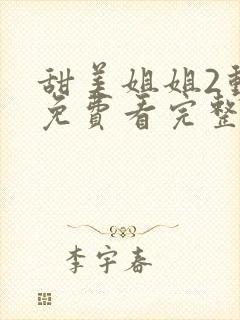 甜美姐姐2
免費看完整
李宇春